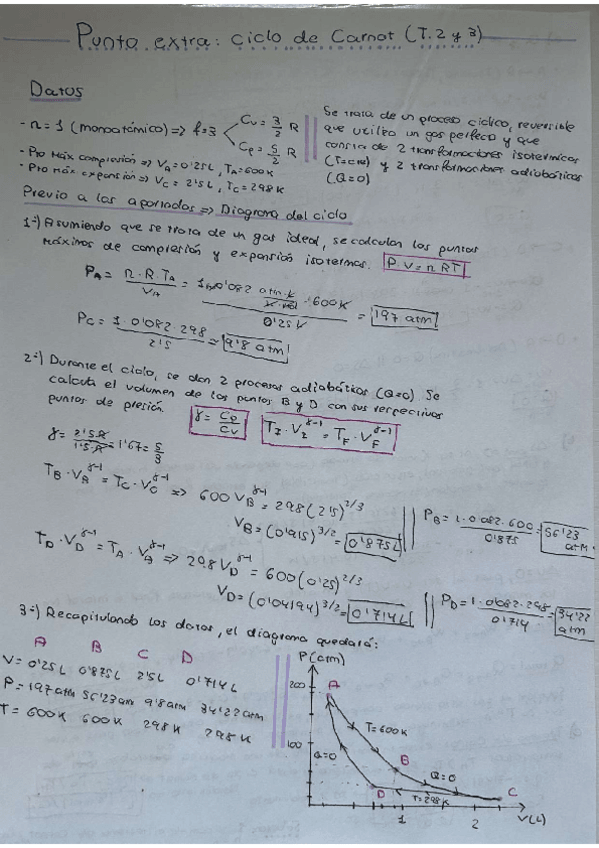 Punto extra: Ciclo de Carnot (T.2 y 3)
Datos
- n=1 (monoatómico) => f=3 Cv = 3/2 R
Cp = 5/2 R
- Pto Máx compresión => VA=0'25L, TA=600K
- Pto Máx expansión => VC=2'5L, TC=298K
Se trata de un proceso cíclico, reversible
que utiliza un gas perfecto y que
consta de 2 transformaciones isotérmicas
(T=cte) y 2 transformaciones adiabáticas
(Q=0)
Previo a los apartados => Diagrama del ciclo
1º-) Asumiendo que se trata de un gas ideal, se calculan los puntos
máximos de compresión y expansión isotermas. P·V = nRT
PA = n·R·TA / VA = 1·0'082 atm·L/K·mol · 600K / 0'25L = 197 atm
PC = 1·0'082·298 / 2'5 = 9'8 atm
2º-) Durante el ciclo, se dan 2 procesos adiabáticos (Q=0) Se
calcula el volumen de los puntos B y D con sus respectivos
puntos de presión. γ = Cp/Cv TI·VI^γ-1 = TF·VF^γ-1
γ = 2'5R/1'5R = 1'67 = 5/3
TB·VB^γ-1 = TC·VC^γ-1 => 600VB^γ-1 = 298(2'5)^2/3
VB = (0'915)^3/2 = 0'875L
PB = 1·0'082·600 / 0'875 = 56'23 atm
TD·VD^γ-1 = TA·VA^γ-1 => 298VD^γ-1 = 600(0'25)^2/3
VD = (0'04194)^3/2 = 0'714L
PD = 1·0'082·298 / 0'714 = 34'22 atm
3º-) Recapitulando los datos, el diagrama quedará:
A B C D
V= 0'25L 0'875L 2'5L 0'714L
P= 197atm 56'23atm 9'8atm 34'22atm
T= 600K 600K 298K 298K
P(atm)
200
A
T=600K
100
B
Q=0
Q=0
D
T=298K
C
1
2
V(L)